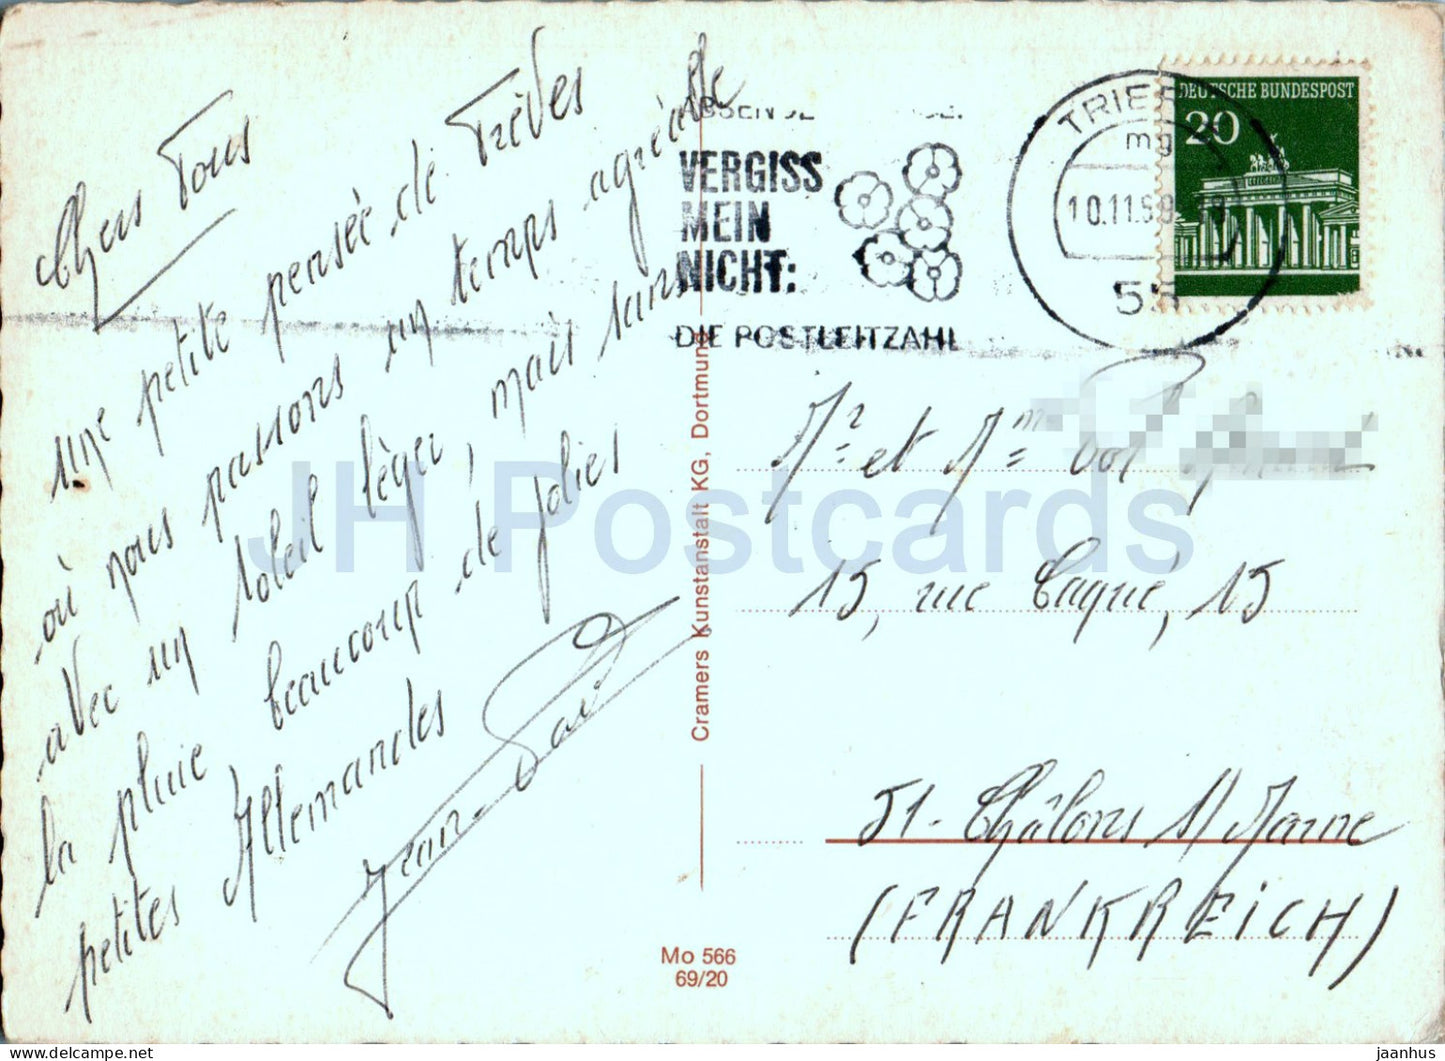 Chers Tous
une petite pensée de Trèves
où nous passons un temps agréable
avec un soleil léger, mais sans
la pluie, beaucoup de jolies
petites Allemandes
Jean-Paul
ABSENDE
VERGISS
MEIN
NICHT:
DIE POSTLEITZAHL
TRIER
mg
10.11.69
55
DEUTSCHE BUNDESPOST
20
Mr et Mme
15, rue Caqué, 15
51 - Châlons s/ Marne
(FRANKREICH)
Cramers Kunstanstalt KG, Dortmund
Mo 566
69/20
JH Postcards
jaanhus @ delcampe.net